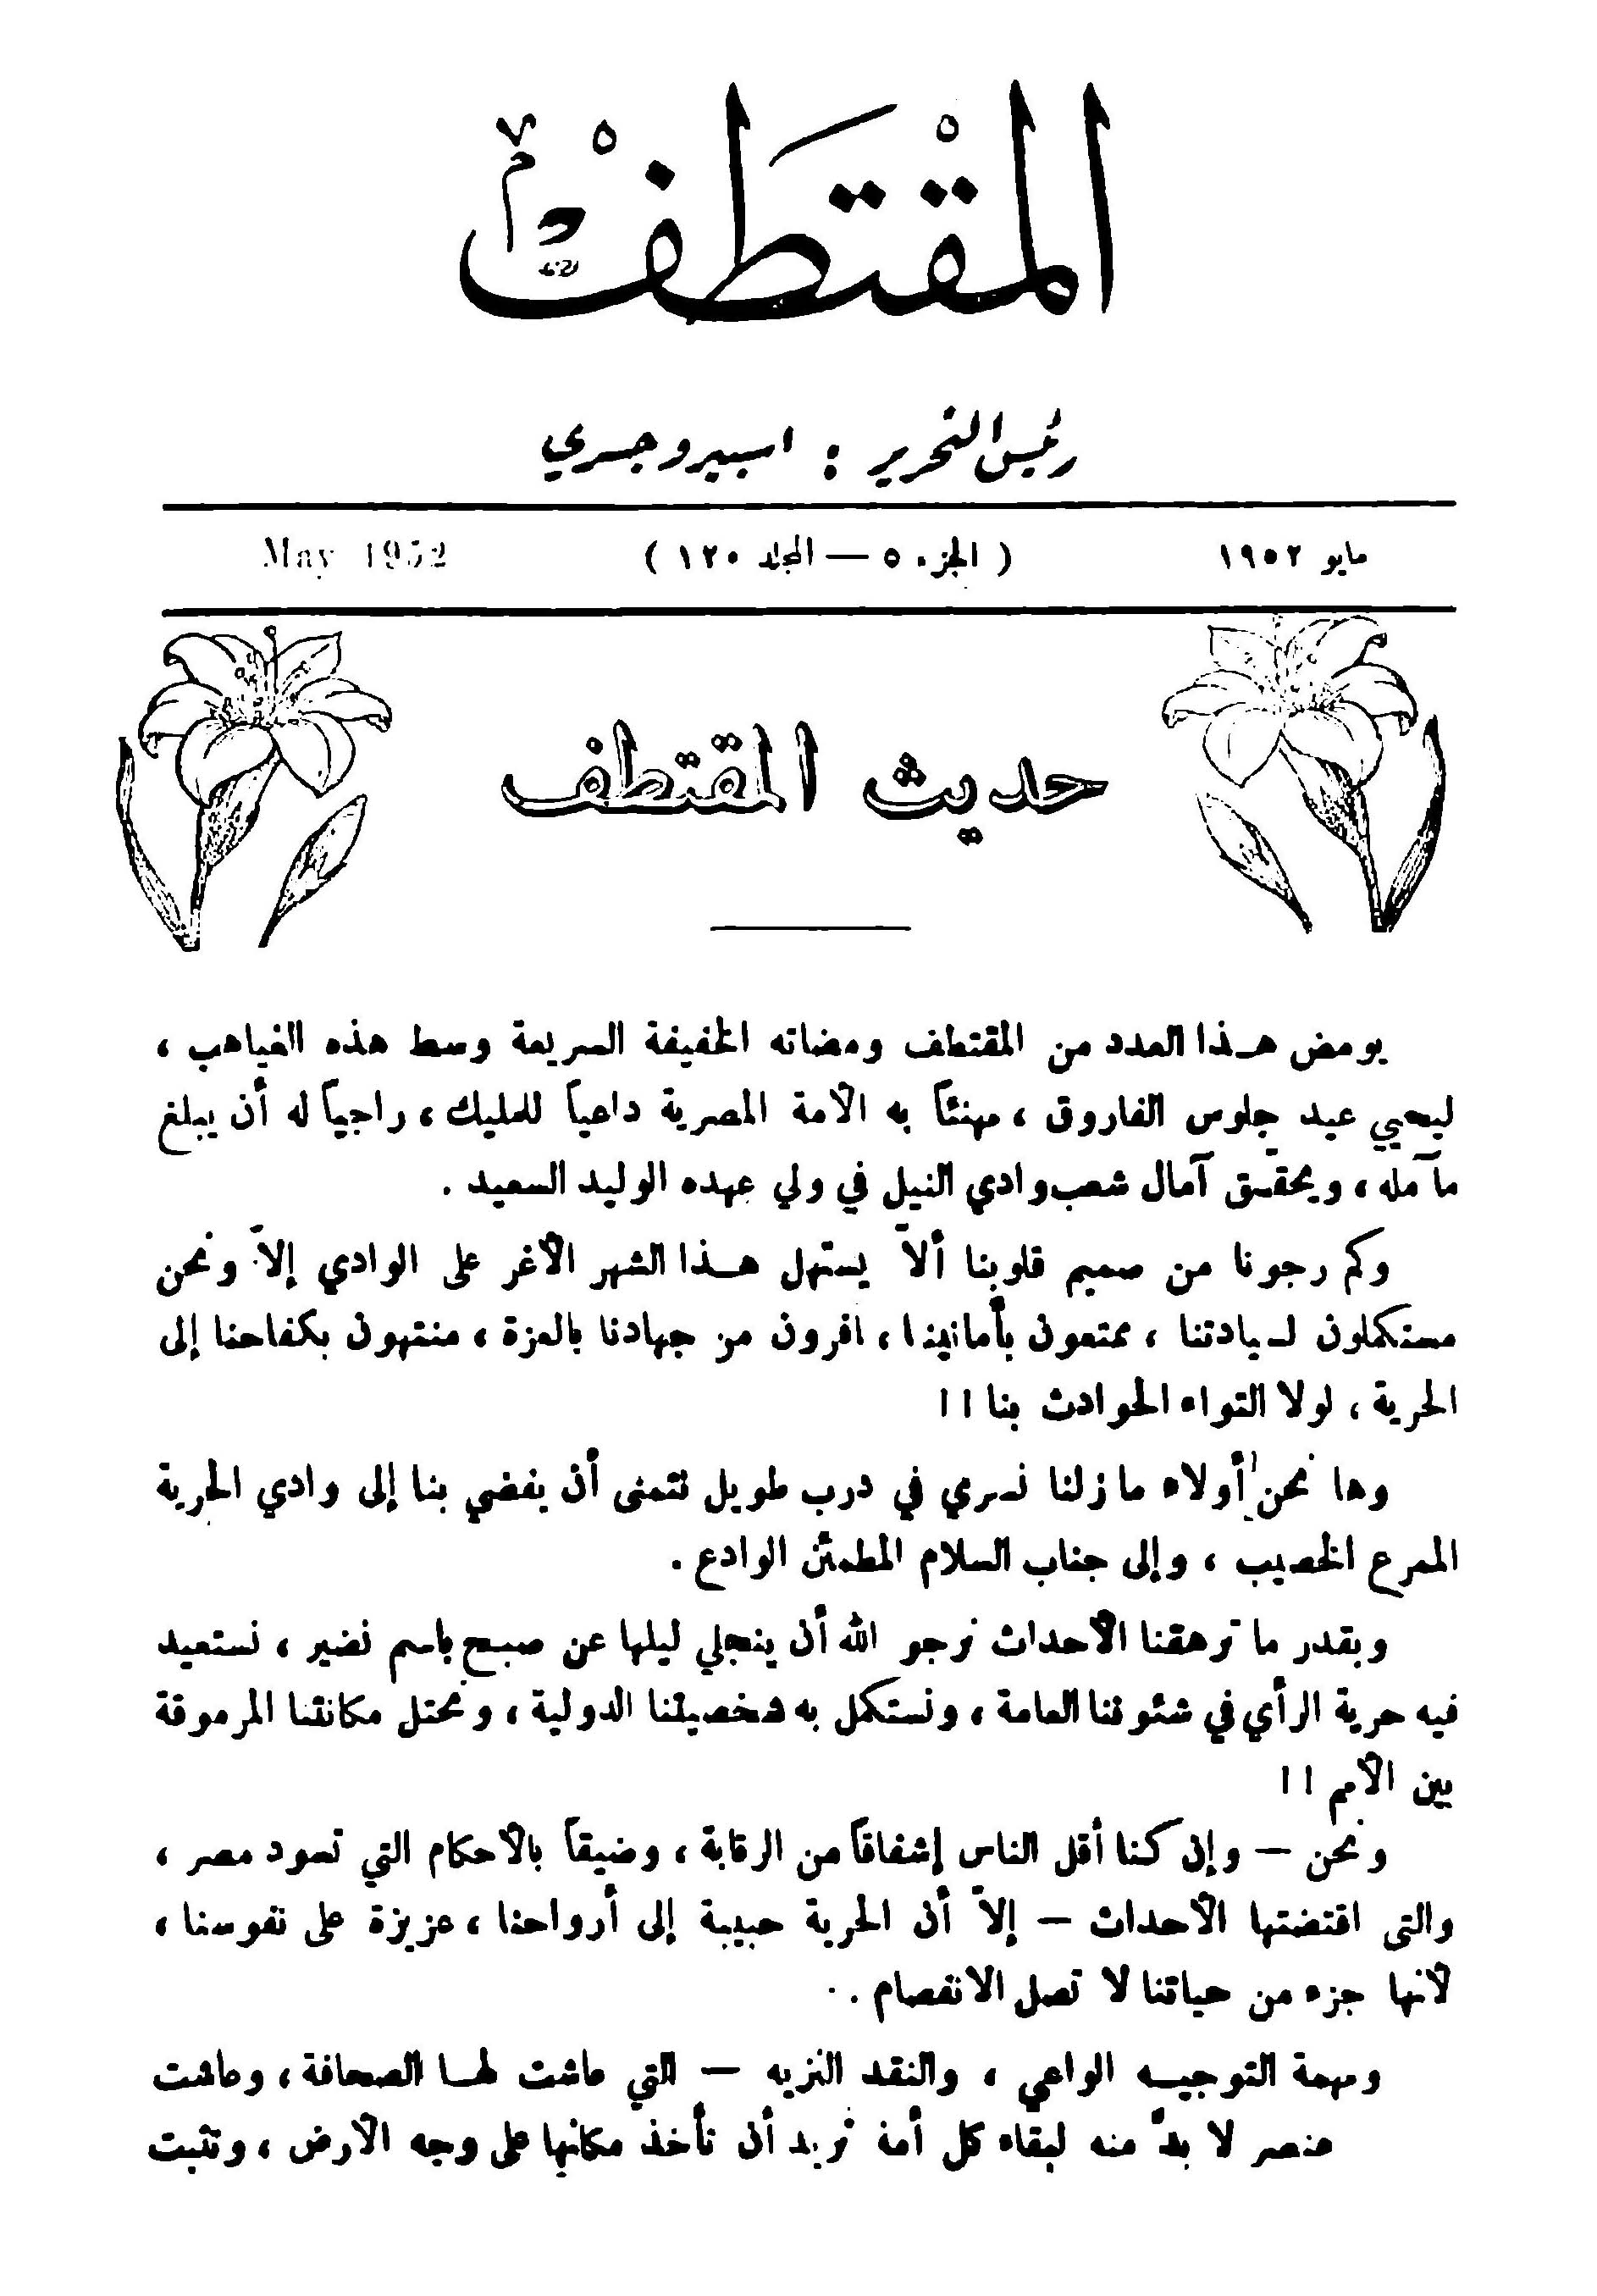 المقتطف
رئيس التحرير : اسبيرو جسري
مايو ١٩٥٢
( الجزء ٥ — المجلد ١٢٠ )
May 1952
حديث المقتطف
يومض هـذا العدد من المقتطف ومضاته الخفيفة السريعة وسط هذه الغياهب ،
ليحيي عيد جلوس الفاروق ، مهنئاً به الأمة المصرية داعياً للمليك ، راجياً له أن يبلغ
مآمله ، ويحقق آمال شعب وادي النيل في ولي عهده الوليد السعيد .
وكم رجونا من صميم قلوبنا ألاّ يستهل هـذا الشهر الأغر على الوادي إلاّ ونحن
مستكملون لسيادتنا ، ممتعون بأمانينا ، ظافرون من جهادنا بالعزة ، منتهون بكفاحنا إلى
الحرية ، لولا التواء الحوادث بنا !!
وها نحن أولاء ما زلنا نسري في درب طويل نتمنى أن يفضي بنا إلى وادي الحرية
الممرع الخصيب ، وإلى جناب السلام المطمئن الوادع .
وبقدر ما ترهقنا الأحداث نرجو الله أن ينجلي ليلها عن صبح باسم نضير ، نستعيد
فيه حرية الرأي في شئوننا العامة ، ونستكمل به شخصيتنا الدولية ، ونحتل مكانتنا المرموقة
بين الأمم !!
ونحن — وإن كنا أقل الناس إشفاقاً من الرقابة ، وضيقاً بالأحكام التي تسود مصر ،
والتى اقتضتها الأحداث — إلاّ أن الحرية حبيبة إلى أرواحنا ، عزيزة على نفوسنا ،
لأنها جزء من حياتنا لا تصل الانفصام . .
ومهمة التوجيـه الواعي ، والنقد النزيه — التي عاشت لهـا الصحافة ، وعاشت
عنصر لا بدَّ منه لبقاء كل أمة تريد أن تأخذ مكانها على وجه الأرض ، وتثبت